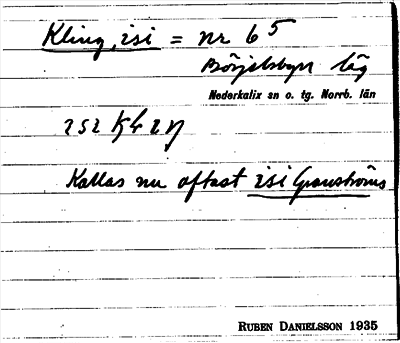 Kling, isi = nr 65
Börjelsbyn läg
Nederkalix sn o. tg. Norrb. län
Kallas nu oftast isi Granströms
RUBEN DANIELSSON 1935